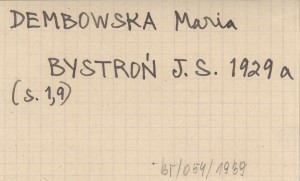 DEMBOWSKA Maria
BYSTROŃ J. S. 1929 a
(s. 1,9)
BT/054/1959